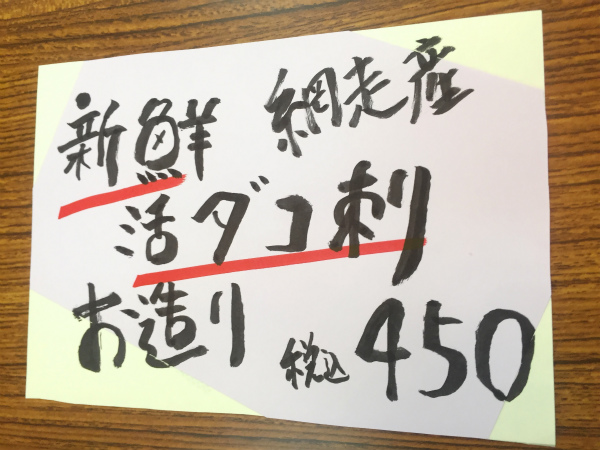 新鮮 網走産
活ダコ刺
お造り 税込450